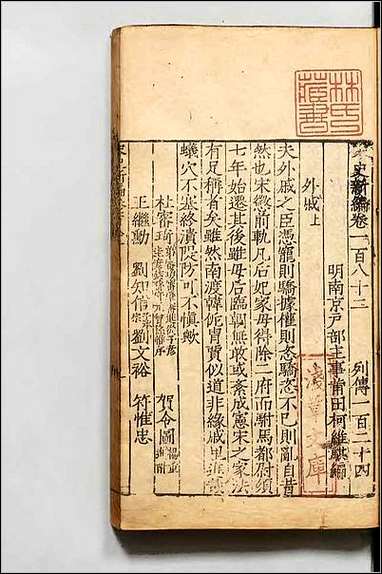 宋史新編卷一百八十三　列傳一百二十四
明南京戶部主事莆田柯維騏編
外戚上
夫外戚之臣憑寵則驕據權則恣驕恣不已則亂自昔
然也宋懲前軌凡后妃家毋得除二府而駙馬都尉須
七年始還其後雖母后臨朝無敢或紊成憲宋之家法
有足稱者矣雖然南渡韓侂冑賈似道非緣戚
蟻穴不塞終潰隄防可不慎歟
杜審琦 賀令圖
王繼勳 劉知信 劉文裕 符惟忠
林氏藏書
文庫